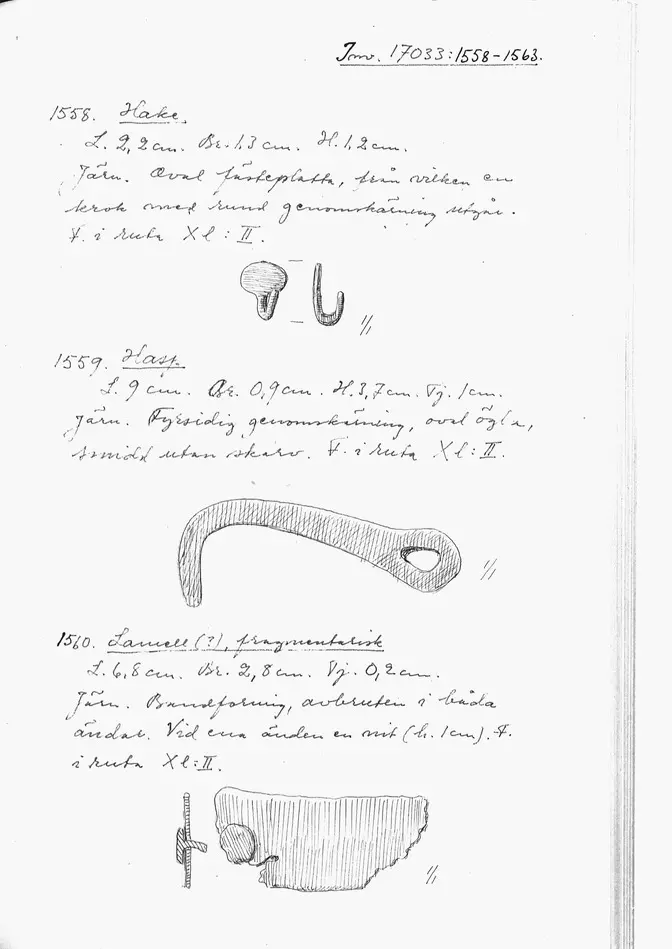 Inv. 17033:1558-1563.
1558. Hake.
L. 2,2 cm. Br. 1,3 cm. H. 1,2 cm.
Järn. Oval fästeplatta, från vilken en
krok med rund genomskärning utgår.
F. i ruta Xl:II.
1/1
1559. Hasp.
L. 9 cm. Br. 0,9 cm. H. 3,7 cm. Tj. 1 cm.
Järn. Fyrsidig genomskärning, oval ögla,
smidd utan skarv. F. i ruta Xl:II.
1/1
1560. Lamell (?), fragmentarisk
L. 6,8 cm. Br. 2,8 cm. Tj. 0,2 cm.
Järn. Bandformig, avbruten i båda
ändar. Vid ena änden en nit (h. 1 cm). F.
i ruta Xl:II.
1/1